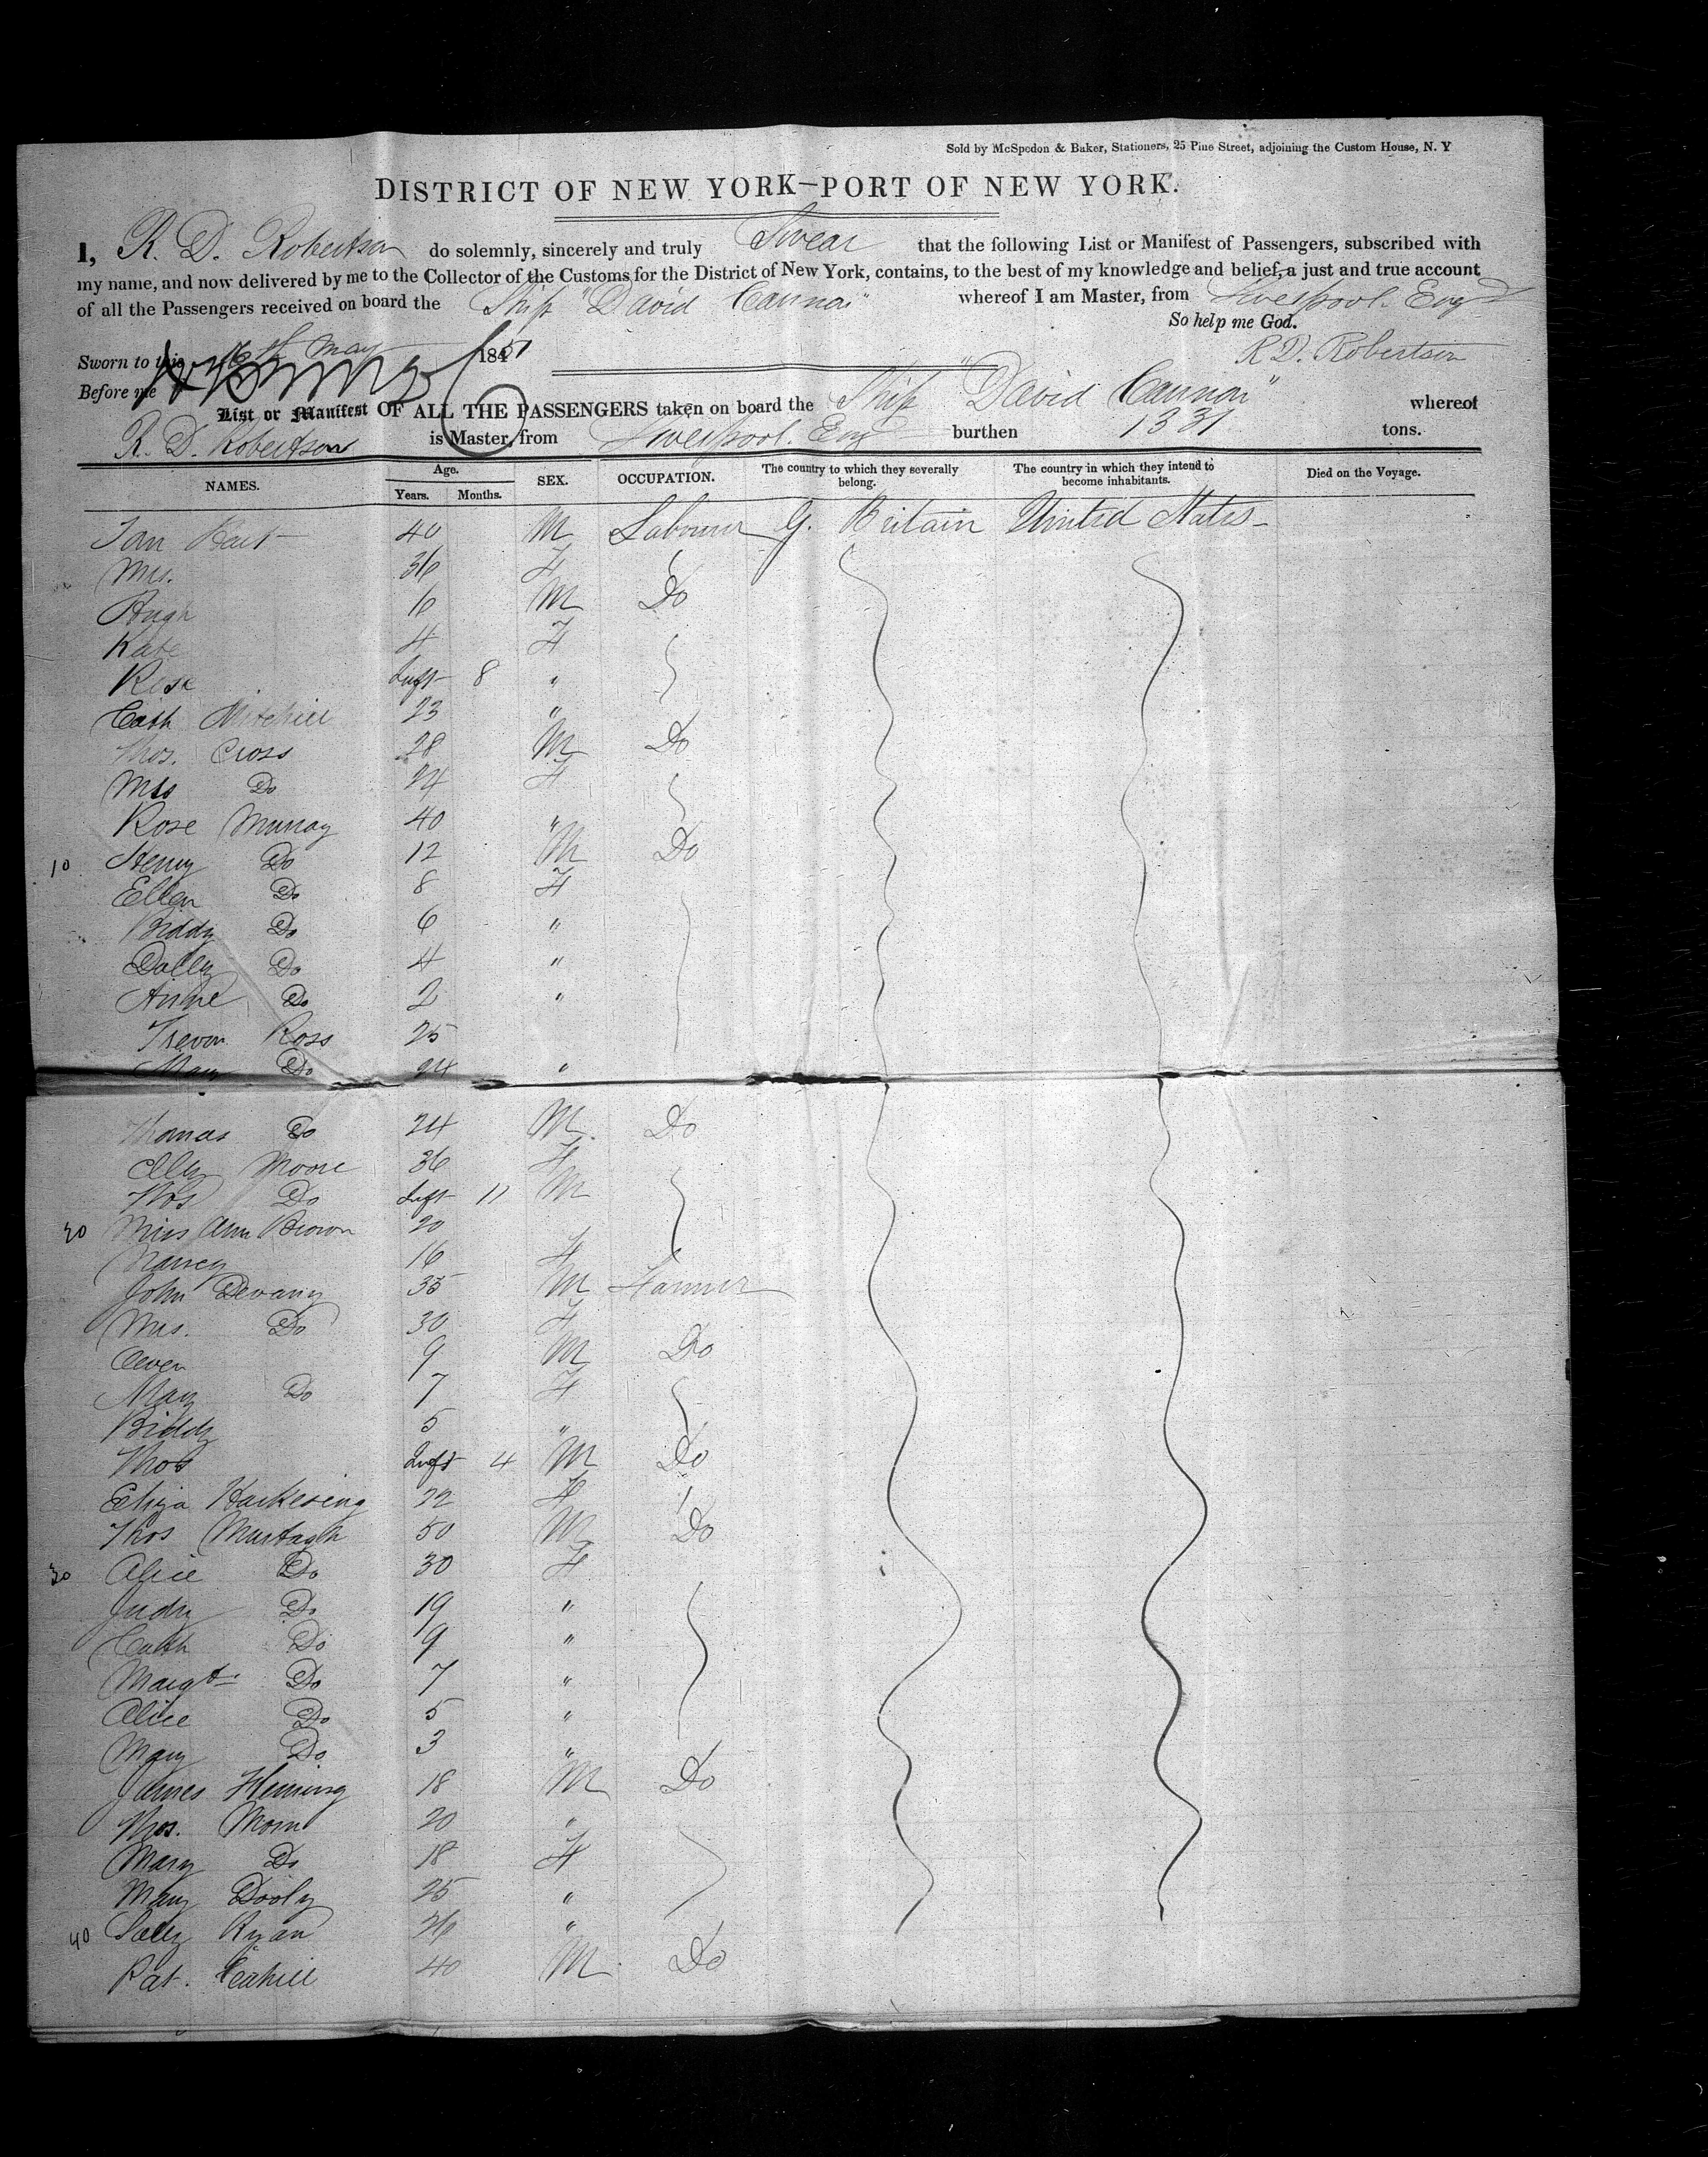 Sold by McSpedon & Baker, Stationers, 25 Pine Street, adjoining the Custom House, N. Y
DISTRICT OF NEW YORK—PORT OF NEW YORK.
I, R. D. Robertson do solemnly, sincerely and truly Swear that the following List or Manifest of Passengers, subscribed with
my name, and now delivered by me to the Collector of the Customs for the District of New York, contains, to the best of my knowledge and belief, a just and true account
of all the Passengers received on board the Ship "David Cannon" whereof I am Master, from Liverpool. Engd
So help me God.
Sworn to this 16 May 1851 R. D. Robertson
Before me
List or Manifest OF ALL THE PASSENGERS taken on board the Ship "David Cannon" whereof
R. D. Robertson is Master, from Liverpool. Eng burthen 1331 tons.
NAMES. Age. Years. Months. SEX. OCCUPATION. The country to which they severally belong. The country in which they intend to become inhabitants. Died on the Voyage.
40 M Labourer G. Britain United States
Mrs. 36 F
Hugh 6 M Do
Kate 4 F
Rose Inft 8 "
Cath Mitchell 23 "
Thos. Cross 28 M Do
Mrs Do 24 F
Rose Murray 40 "
10 Henry Do 12 M Do
Ellen Do 8 F
Biddy Do 6 "
Dolly Do 4 "
Anne Do 2 "
Ross 25
Mary Do 24 "
Thomas Do 24 M Do
Moore 36 F
Thos Do Inft 11 M
20 Miss Ann Brown 20
Nancy 16 F
John Devany 35 M Farmer
Mrs. Do 30 F
Owen 9 M Do
Mary Do 7 F
Biddy 5 "
Thos Inft 4 M Do
Eliza 22 F
Thos Murtagh 50 M Do
30 Alice Do 30 F
Judy Do 19 "
Cath Do 9 "
Margt Do 7 "
Alice Do 5 "
Mary Do 3 "
James Fleming 18 M Do
Thos. 20 "
Mary Do 18 F
Mary Dooly 25 "
40 Sally Ryan 26 "
Pat. Cahill 40 M Do